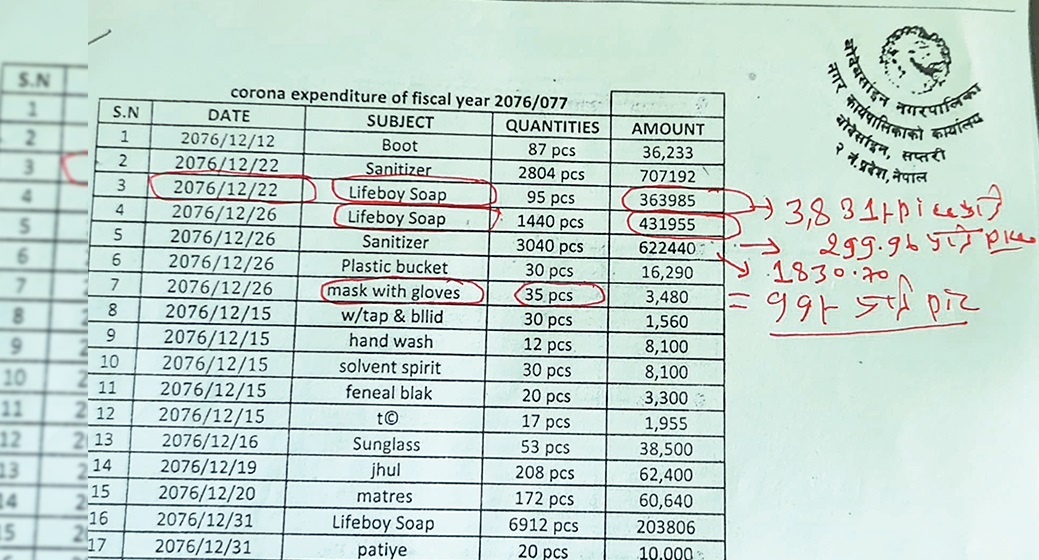 corona expenditure of fiscal year 2076/077
S.N DATE SUBJECT QUANTITIES AMOUNT
1 2076/12/12 Boot 87 pcs 36,233
2 2076/12/22 Sanitizer 2804 pcs 707192
3 2076/12/22 Lifeboy Soap 95 pcs 363985
4 2076/12/26 Lifeboy Soap 1440 pcs 431955
5 2076/12/26 Sanitizer 3040 pcs 622440
6 2076/12/26 Plastic bucket 30 pcs 16,290
7 2076/12/26 mask with gloves 35 pcs 3,480
8 2076/12/15 w/tap & bllid 30 pcs 1,560
9 2076/12/15 hand wash 12 pcs 8,100
10 2076/12/15 solvent spirit 30 pcs 8,100
11 2076/12/15 feneal blak 20 pcs 3,300
12 2076/12/15 t© 17 pcs 1,955
13 2076/12/16 Sunglass 53 pcs 38,500
14 2076/12/19 jhul 208 pcs 62,400
15 2076/12/20 matres 172 pcs 60,640
16 2076/12/31 Lifeboy Soap 6912 pcs 203806
17 2076/12/31 patiye 20 pcs 10,000
नगरपालिका
नगर कार्यपालिकाको कार्यालय
सप्तरी
२ नं. प्रदेश, नेपाल
299.96
1830.70
S.N
1
2
3
4
5
6
7
8
9
10
11
12
13
14
15